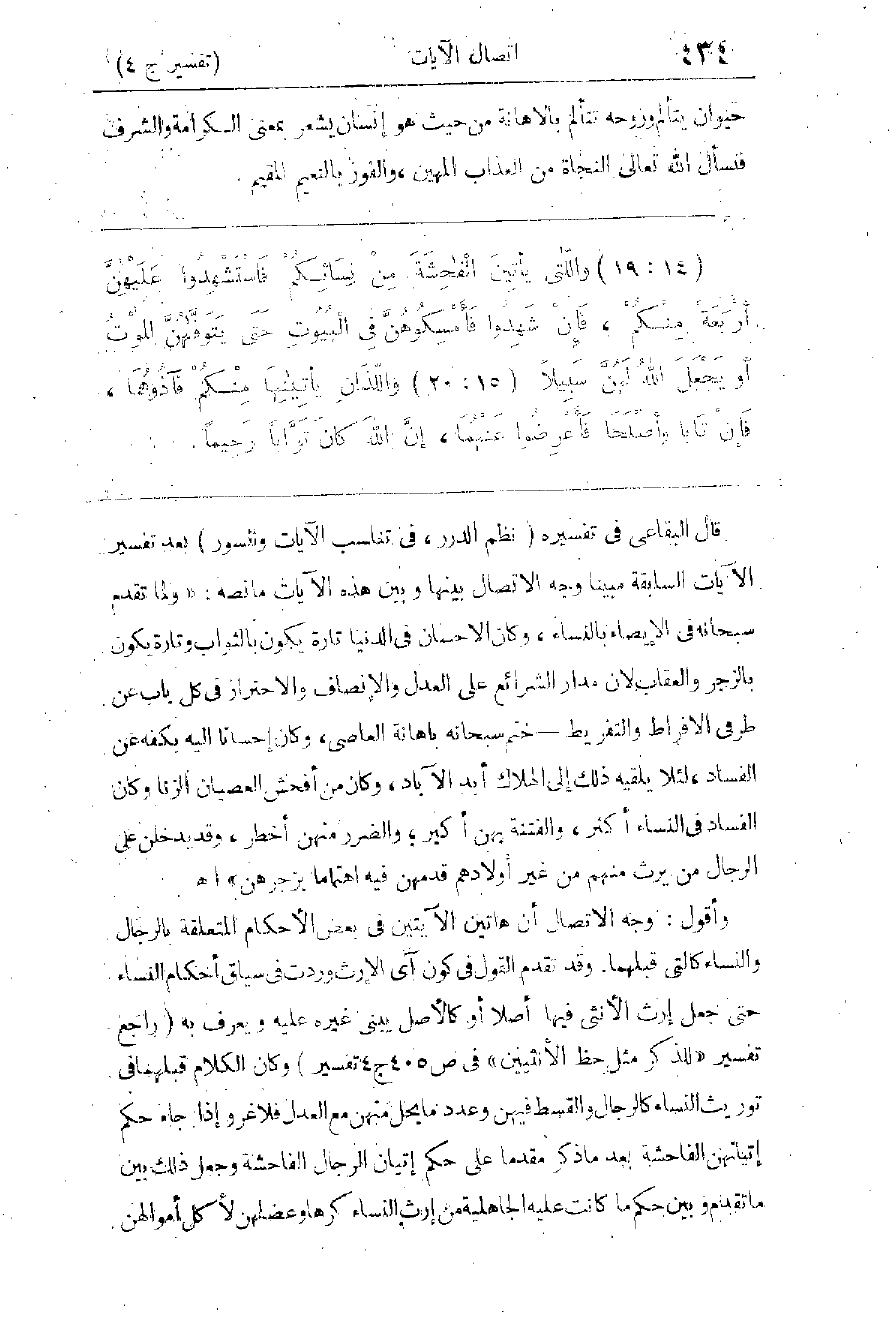 ٤٣٤ اتصال الآيات (تفسير ج ٤)
حيوان يتألم وروحه تتألم بالاهانة من حيث هو إنسان يشعر بمعنى الكرامة والشرف
فنسأل الله تعالى النجاة من العذاب المهين ، والفوز بالنعيم المقيم .
(١٤ : ١٩) واللَّتى يأتينَ الْفاحِشَةَ مِنْ نِسَائِكمُ فَاسْتَشْهِدُوا عَلَيْهِنَّ
أَرْبَعَةً مِنْكُمْ ، فَإِنْ شَهِدُوا فَأَمْسِكُوهُنَّ فِى الْبُيُوتِ حَتَى يَتَوَفَّهُنَّ الموْتُ
أو يَجْعَلَ اللهُ لَهُنَّ سَبِيلاً (١٥ : ٢٠) واللَّذَانِ يأتِيٰنِهَا مِنْكمُ فَآذُوهُمَا ،
فَإِنْ تَابا وأَصْلَحَا فَأَعْرِضُوا عَنْهُمَا ، إنَّ اللهَ كانَ تَوَّاباً رَحِيماً .
قال البقاعى فى تفسيره ( نظم الدرر ، فى تناسب الآيات والسور ) بعد تفسير
الآيات السابقة مبينا وجه الاتصال بينها وبين هذه الآيات مانصه : « ولما تقدم
سبحانه فى الإيصاء بالنساء ، وكان الاحسان فى الدنيا تارة يكون بالثواب وتارة يكون
بالزجر والعقاب لان مدار الشرائع على العدل والإنصاف والاحتراز فى كل باب عن
طرفى الافراط والتفريط — ختم سبحانه باهانة العاصى ، وكان إحسانا اليه بكفه عن
الفساد ، لئلا يلقيه ذلك إلى الهلاك أبد الآباد ، وكان من أفحش العصيان الزنا وكان
الفساد فى النساء أكثر ، والفتنة بهن أكبر ؛ والضرر منهن أخطر ، وقد يدخلن على
الرجال من يرث منهم من غير أولادهم قدمهن فيه اهتماما بزجرهن » ا ه
وأقول : وجه الاتصال أن هاتين الآيتين فى بعض الأحكام المتعلقة بالرجال
والنساء كالتى قبلهما. وقد تقدم القول فى كون آى الإرث وردت فى سياق أحكام النساء
حتى جعل إرث الأنثى فيها أصلا أو كالأصل يبنى غيره عليه ويعرف به ( راجع
تفسير « للذكر مثل حظ الأنثيين » فى ص ٤٠٥ ج ٤ تفسير ) وكان الكلام قبلهما فى
توريث النساء كالرجال والقسط فيهن وعدد مايحل منهن مع العدل فلا غرو إذا جاء حكم
إتيانهن الفاحشة بعد ماذكر مقدما على حكم إتيان الرجال الفاحشة وجعل ذلك بين
ماتقدم وبين حكم ما كانت عليه الجاهلية من إرث النساء كرها وعضلهن لأكل أموالهن